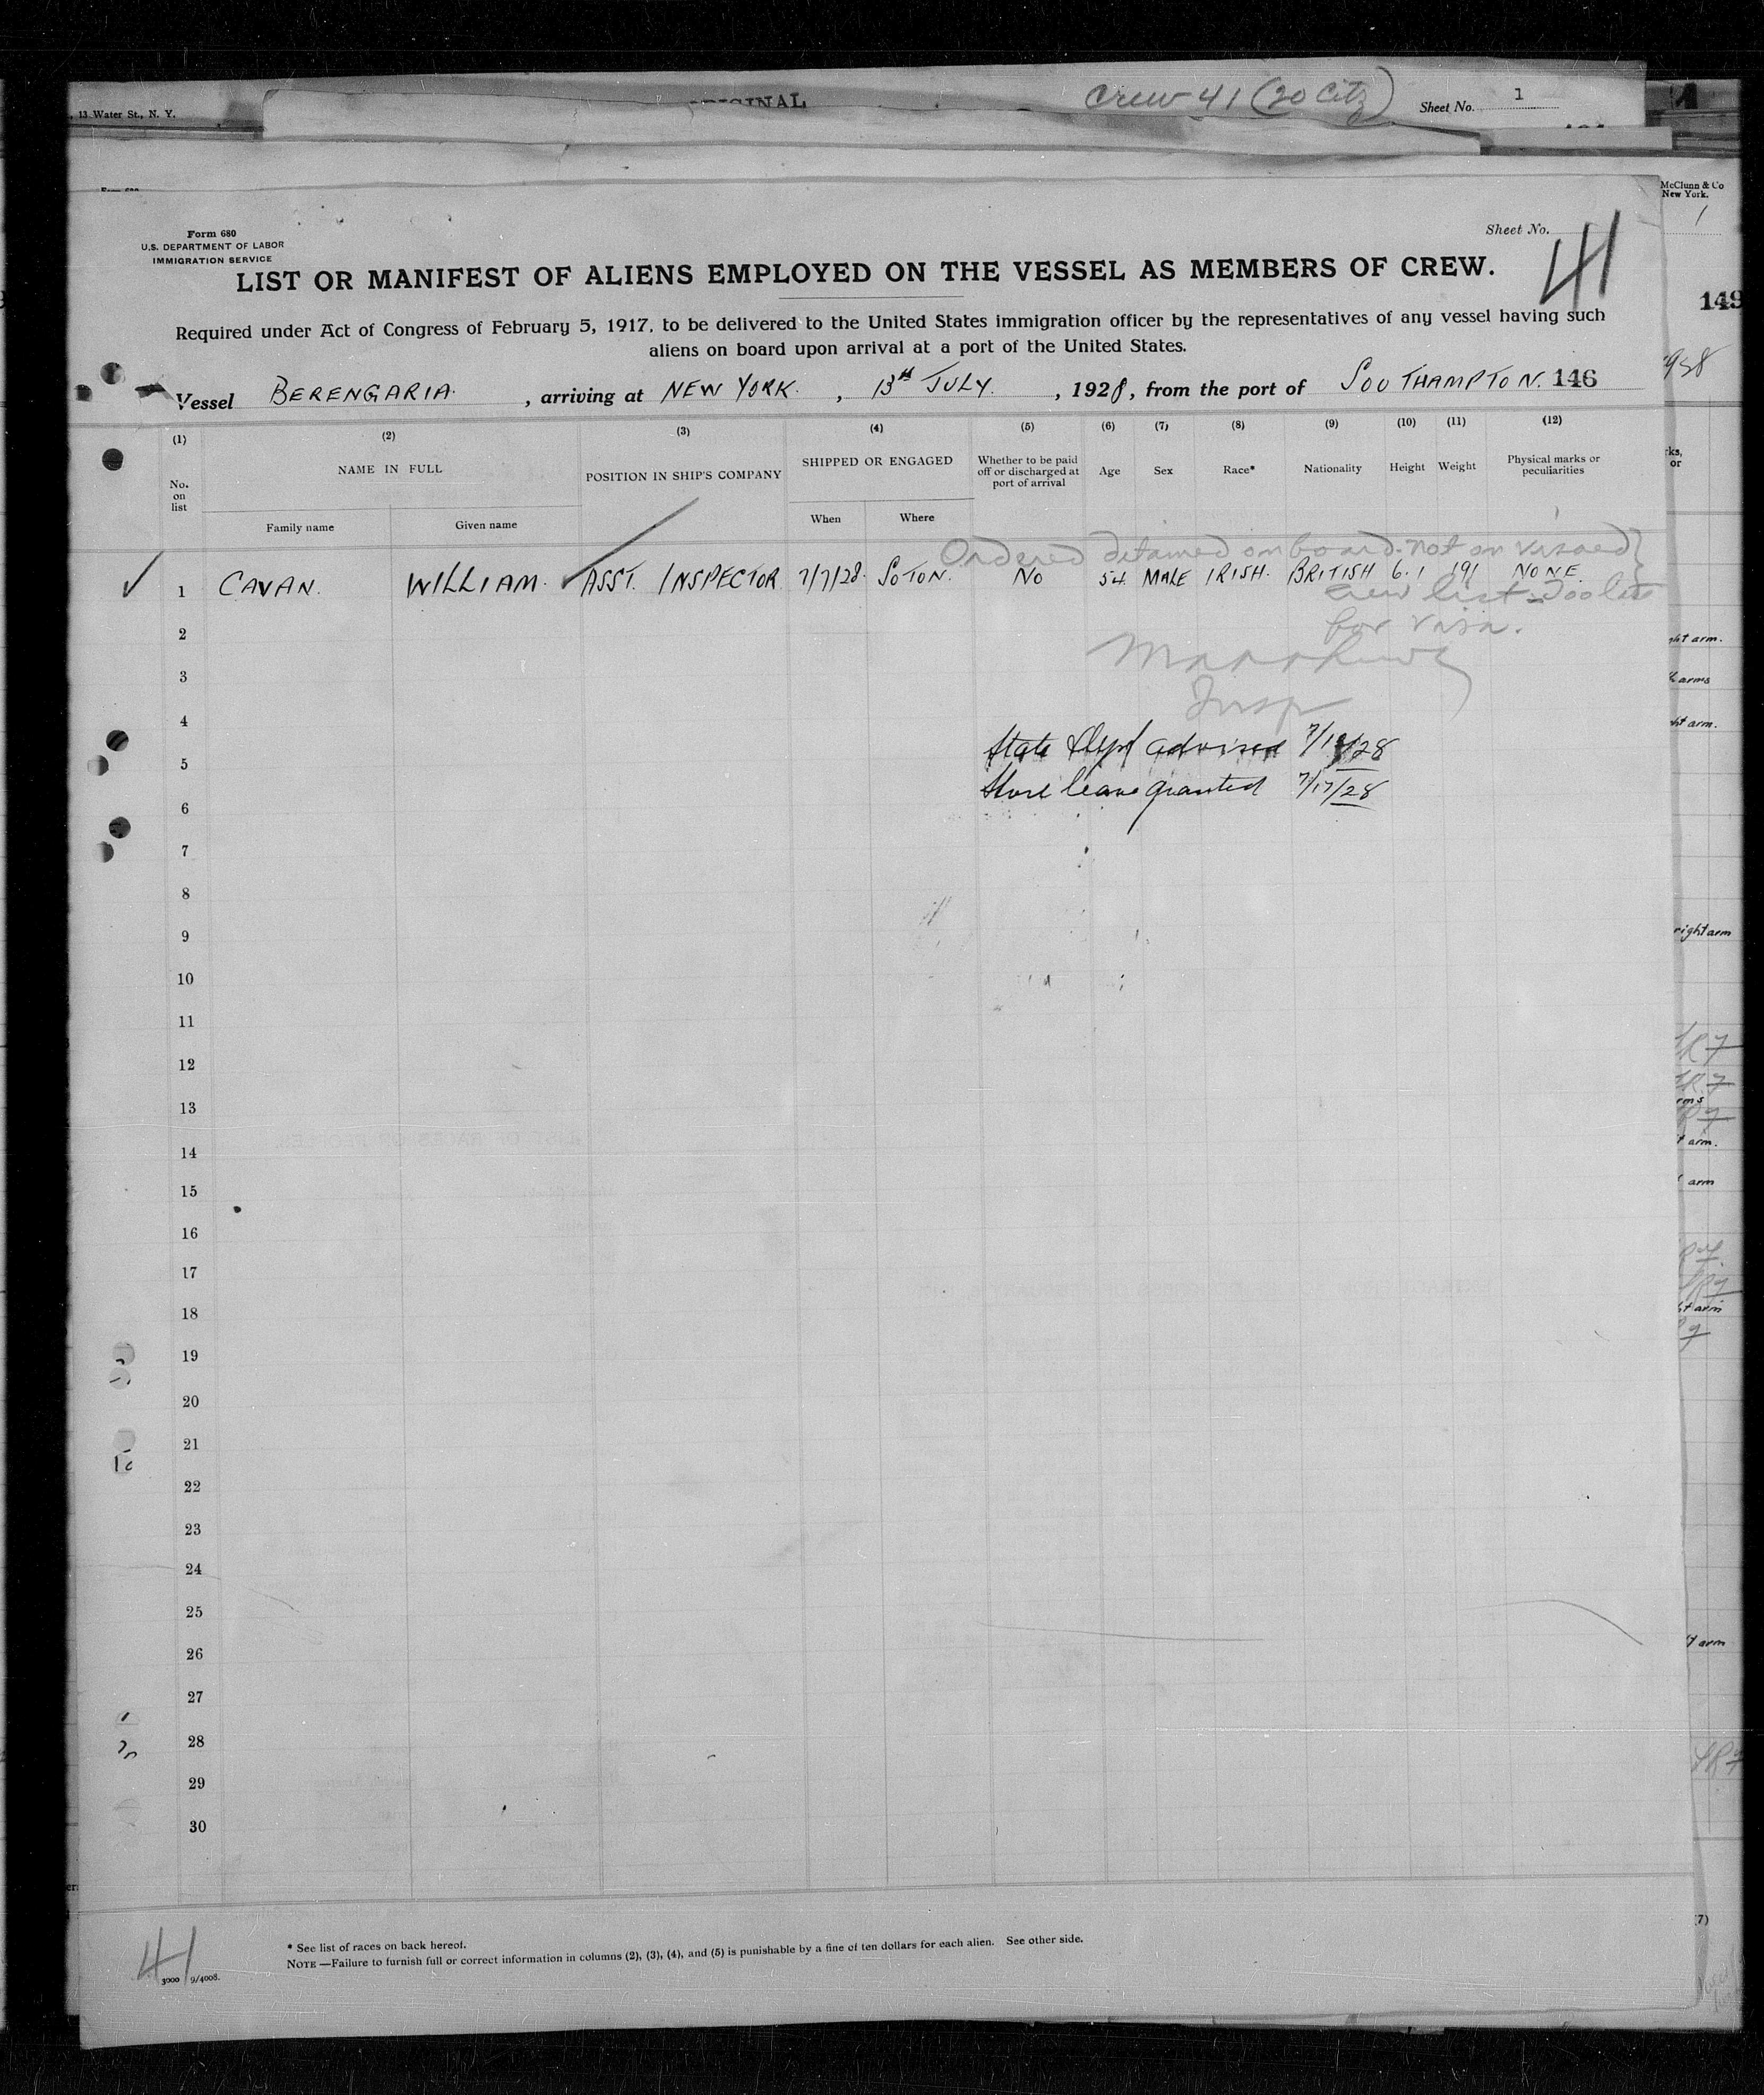 , 13 Water St., N. Y.
ORIGINAL
Crew 41 (20 Citz)
Sheet No. 1
McClunn & Co
New York.
1
Form 680
U.S. DEPARTMENT OF LABOR
IMMIGRATION SERVICE
Sheet No.
41
LIST OR MANIFEST OF ALIENS EMPLOYED ON THE VESSEL AS MEMBERS OF CREW.
149
Required under Act of Congress of February 5, 1917, to be delivered to the United States immigration officer by the representatives of any vessel having such
aliens on board upon arrival at a port of the United States.
Vessel BERENGARIA. , arriving at NEW YORK. , 13th JULY. , 1928, from the port of SOUTHAMPTON. 146
(1) (2) (3) (4) (5) (6) (7) (8) (9) (10) (11) (12)
No. on list NAME IN FULL POSITION IN SHIP'S COMPANY SHIPPED OR ENGAGED Whether to be paid off or discharged at port of arrival Age Sex Race* Nationality Height Weight Physical marks or peculiarities
Family name Given name When Where
Ordered detained on board. not on visaed
1 CAVAN. WILLIAM. ASST. INSPECTOR 7/7/28. SOTON. NO 54 MALE IRISH. BRITISH 6.1 191 NONE.
crew list - Too late
for visa.
2
3
Insp
4
State Dept advised 7/1/28
5
Shore leave granted 7/17/28
6
7
8
9
10
11
12
13
14
15
16
17
18
19
20
21
22
23
24
25
26
27
28
29
30
right arm
41
3000 9/4008.
* See list of races on back hereof.
NOTE —Failure to furnish full or correct information in columns (2), (3), (4), and (5) is punishable by a fine of ten dollars for each alien. See other side.